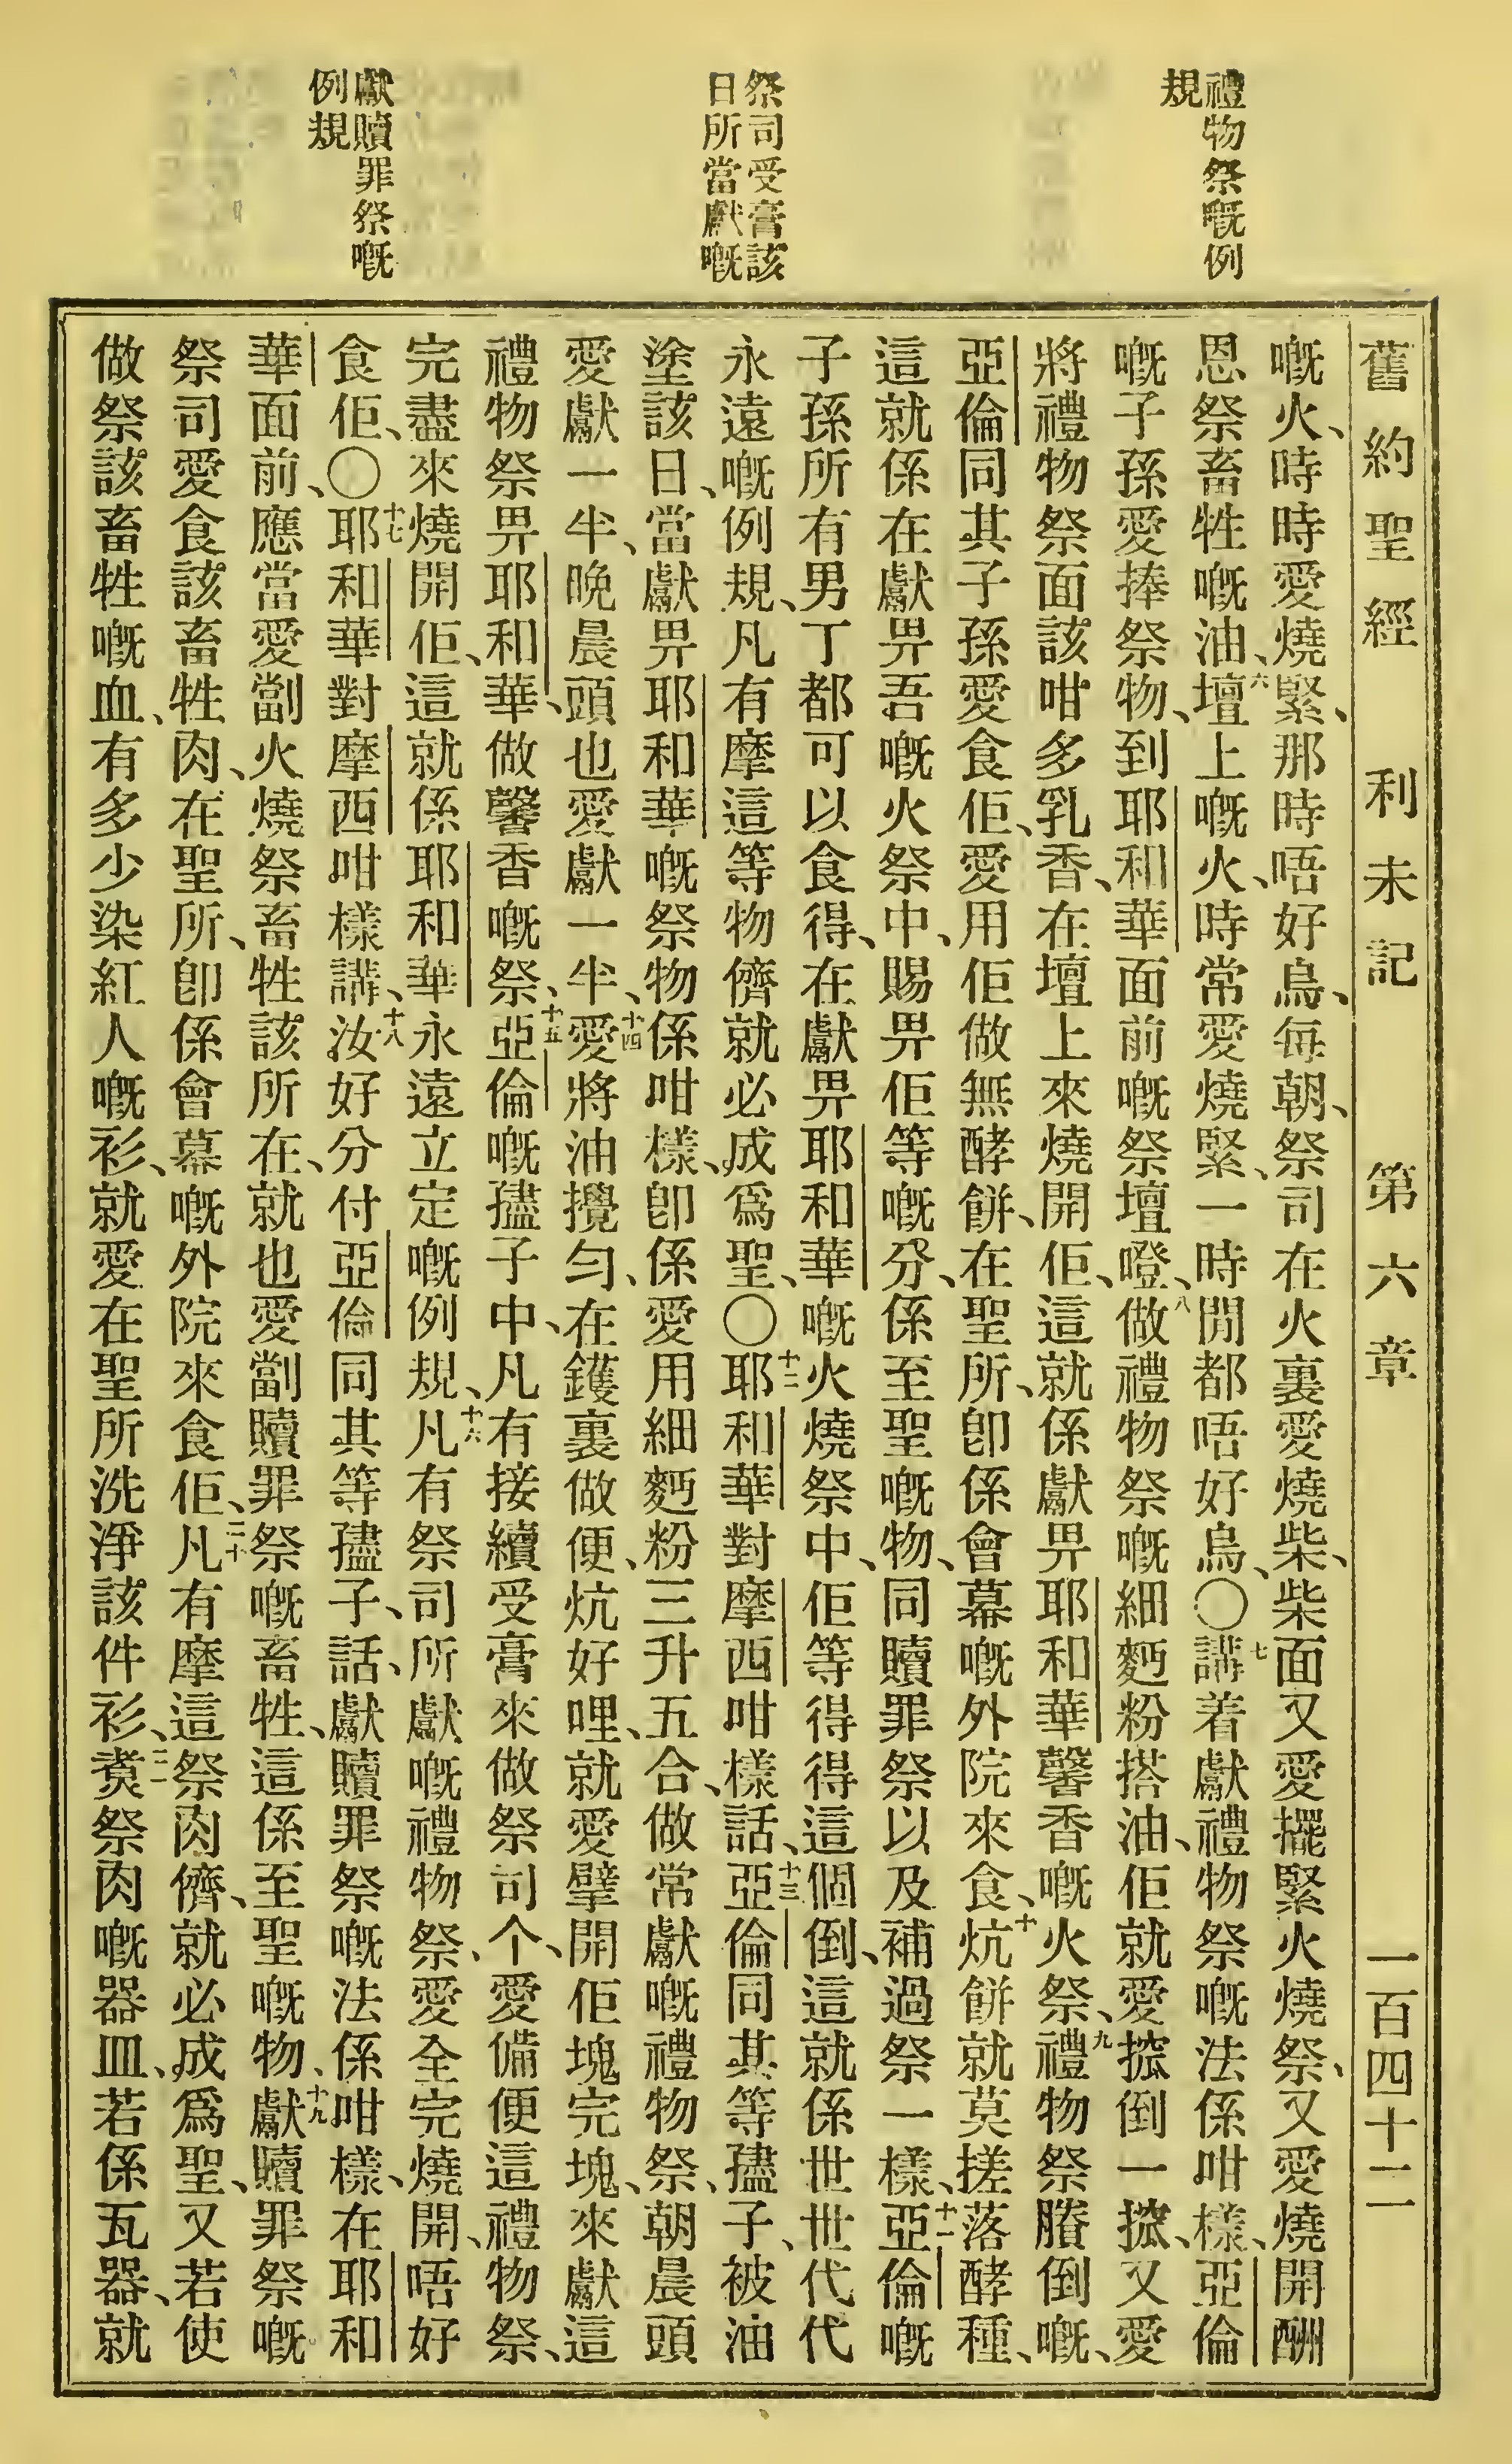 禮物祭嘅例
規
祭司受膏該
日所當獻嘅
獻贖罪祭嘅
例規
舊約聖經 利未記 第六章 一百四十二
嘅火、時時愛燒緊、那時唔好烏、每朝、祭司在火裏愛燒柴、柴面又愛擺緊火燒祭、又愛燒開酬
恩祭畜牲嘅油、六壇上嘅火、時常愛燒緊、一時間都唔好烏、〇七講着獻禮物祭嘅法係咁樣、亞倫
嘅子孫愛捧祭物、到耶和華面前嘅祭壇嶝、八做禮物祭嘅細麪粉搭油、佢就愛𢱢倒一𢱢、又愛
將禮物祭面該咁多乳香、在壇上來燒開佢、這就係獻畀耶和華馨香嘅火祭、九禮物祭賸倒嘅、
亞倫同其子孫愛食佢、愛用佢做無酵餅、在聖所、卽係會幕嘅外院來食、十炕餅就莫搓落酵種、
這就係在獻畀吾嘅火祭中、賜畀佢等嘅分、係至聖嘅物、同贖罪祭以及補過祭一樣、十一亞倫嘅
子孫所有男丁都可以食得、在獻畀耶和華嘅火燒祭中、佢等得得這個倒、這就係世世代代
永遠嘅例規、凡有摩這等物儕就必成爲聖、〇十二耶和華對摩西咁樣話、十三亞倫同其等孻子、被油
塗該日、當獻畀耶和華嘅祭物係咁樣、卽係愛用細麪粉三升五合、做常獻嘅禮物祭、朝晨頭
愛獻一半、晚晨頭也愛獻一半、十四愛將油攪勻、在鑊裏做便、炕好哩、就愛擘開佢塊完塊、來獻這
禮物祭畀耶和華、做馨香嘅祭、十五亞倫嘅孻子中、凡有接續受膏來做祭司个、愛備便這禮物祭、
完盡來燒開佢、這就係耶和華永遠立定嘅例規、十六凡有祭司所獻嘅禮物祭、愛全完燒開、唔好
食佢、〇十七耶和華對摩西咁樣講、十八汝好分付亞倫同其等孻子、話、獻贖罪祭嘅法係咁樣、在耶和
華面前、應當愛劏火燒祭畜牲該所在、就也愛劏贖罪祭嘅畜牲、這係至聖嘅物、十九獻贖罪祭嘅
祭司愛食該畜牲肉、在聖所、卽係會幕嘅外院來食佢、二十凡有摩這祭肉儕、就必成爲聖、又若使
做祭該畜牲嘅血、有多少染紅人嘅衫、就愛在聖所洗淨該件衫、二一煑祭肉嘅器皿、若係瓦器、就